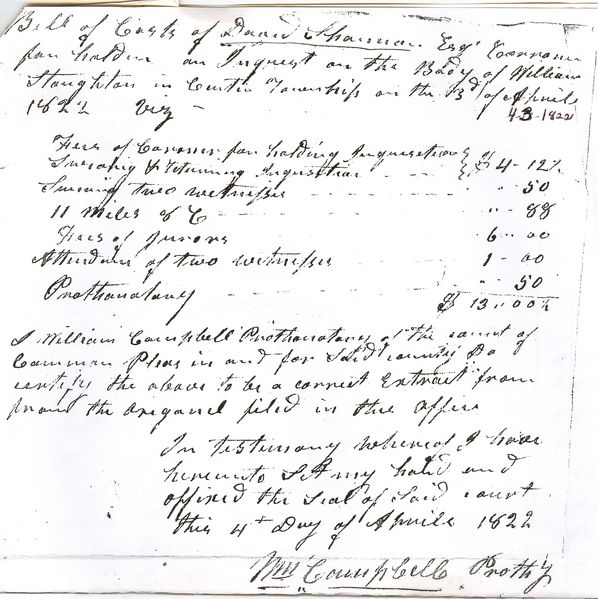 Bill of Costs of David Shannon Esqr Corroner
for holden an Inquest on the Body of William
Staughton in Curtin Township on the 3d of Aprile
1822 Viz -
4-3-1822
Fees of Corroner for holding Inquesition } $ 4 - 12½
Sumoning & returning Inquesition
Sumong two witnesses " 50
11 Miles & C " 88
Fees of Jurors 6 - 00
Attendance of two witnesses 1 - 00
Prothonotary " 50
$ 13 " 00½
I William Campbell Prothonotary of the court of
Common Pleas in and for Said county Do
certify the above to be a correct Extract from
from the origanel filed in the office
In testimony whereof I have
hereunto Set my hand and
affixed the Seal of Said court
this 4th Day of Aprile 1822
Wm Campbell Prothy